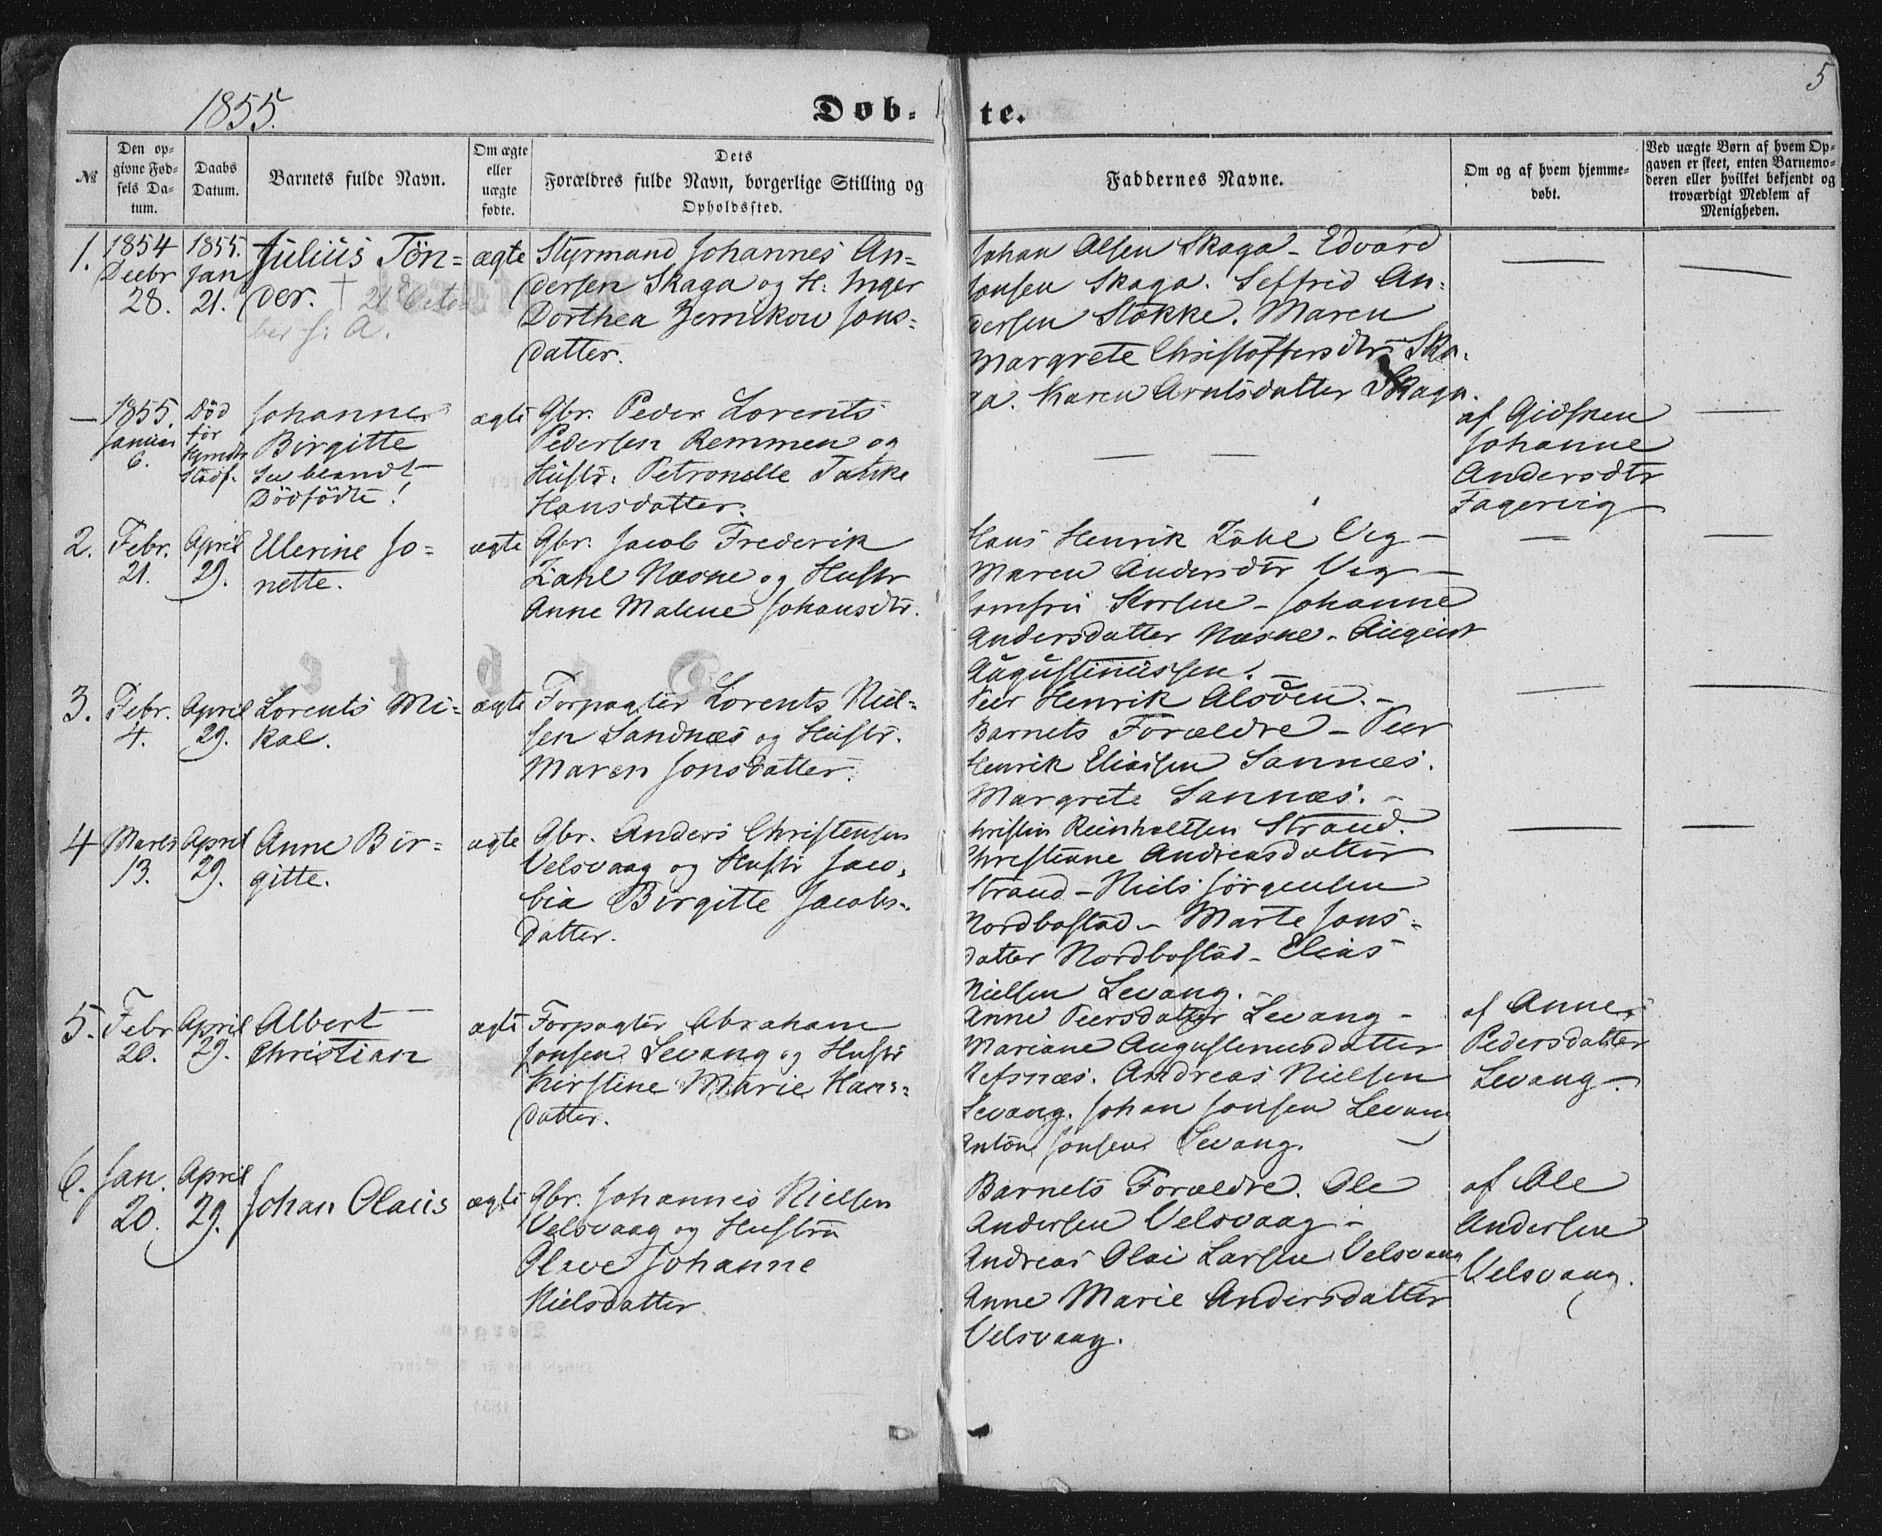 1855.
Døb-
te.
5
№
Den op-
givne Fød-
sels Da-
tum.
Daabs
Datum.
Barnets fulde Navn.
Om ægte
eller
uægte
fødte.
Dets
Forældres fulde Navn, borgerlige Stilling og
Opholdssted.
Faddernes Navne.
Om og af hvem hjemme-
døbt.
Ved uægte Børn af hvem Op-
gaven er skeet, enten Barnemo-
deren eller hvilket bekjendt og
troværdigt Medlem af
Menigheden.
1.
1854
Decbr
28.
1855.
Jan
21.
Julius Tön-
der. † 21 Octo-
ber s: A.
ægte
Styrmand Johannes An-
dersen Skaga og H. Inger
Dorthea Zernikow Jons-
datter.
Johan Olsen Skaga - Edvard
Jonsen Skaga. Seffrid An-
dersen Stokke. Maren
Margrete Christoffersdtr Ska-
ga. Karen Arntsdatter Skaga.
—
1855.
Januar
6.
Död
før
Stadf.
Johanne
Birgitte
See blandt
Dödfödte!
ægte
Gbr. Peder Lorents
Pedersen Remmen og
Hustr. Petronelle
Hansdatter.
af
Johanne
Andersdtr
Fagervig
2.
Febr.
21.
April
29.
Ellerine Jo-
nette.
ægte
Gbr. Jacob Frederik
Zahl Næsne og Hustr
Anne Malene Johansdtr.
Hans Henrik Zahl Veg -
Maren Andersdtr Veg -
Jomfru Korsen - Johanne
Andersdatter Næsne - August
Augustinussen. -
3.
Febr.
4.
April
29.
Lorents Mi-
kal.
ægte
Forpagter Lorents Niel-
sen Sandnæs og Hustr.
Maren Jonsdatter.
Peer Henrik Alsöen. -
Barnets Forældre - Peer
Henrik Eliassen Sannæs.
Margrete Sannæs. -
4
Marts
13.
April
29.
Anne Bir-
gitte.
ægte
Gbr. Anders Christensen
Velsvaag og Hustr Jaco-
bia Birgitte Jacobs-
datter.
Christin Reinholtsen Strand.
Christianne Andreasdatter
Strand - Niels Jörgensen
Nordbostad - Marte Jons-
datter Nordbostad - Elias
Nielsen Levang.
5.
Febr
20.
April
29.
Albert
Christian
ægte
Forpagter Abraham
Jonsen Levang og Hustr
Kirstine Marie Hans-
datter.
Anne Peersdatter Levang -
Mariane Augustinusdatter
Refsnæs. Andreas Nielsen
Levang. Johan Jonsen Levang
Anton Jonsen Levang.
af Anne
Pedersdatter
Levang -
6.
Jan.
20.
April
29.
Johan Olaus
ægte
Gbr. Johannes Nielsen
Velsvaag og Hustru
Olave Johanne
Nielsdatter.
Barnets Forældre. Ole
Andersen Velsvaag -
Andreas Olai Larsen Velsvaag
Anne Marie Andersdatter
Velsvaag.
af Ole
Andersen
Velsvaag.